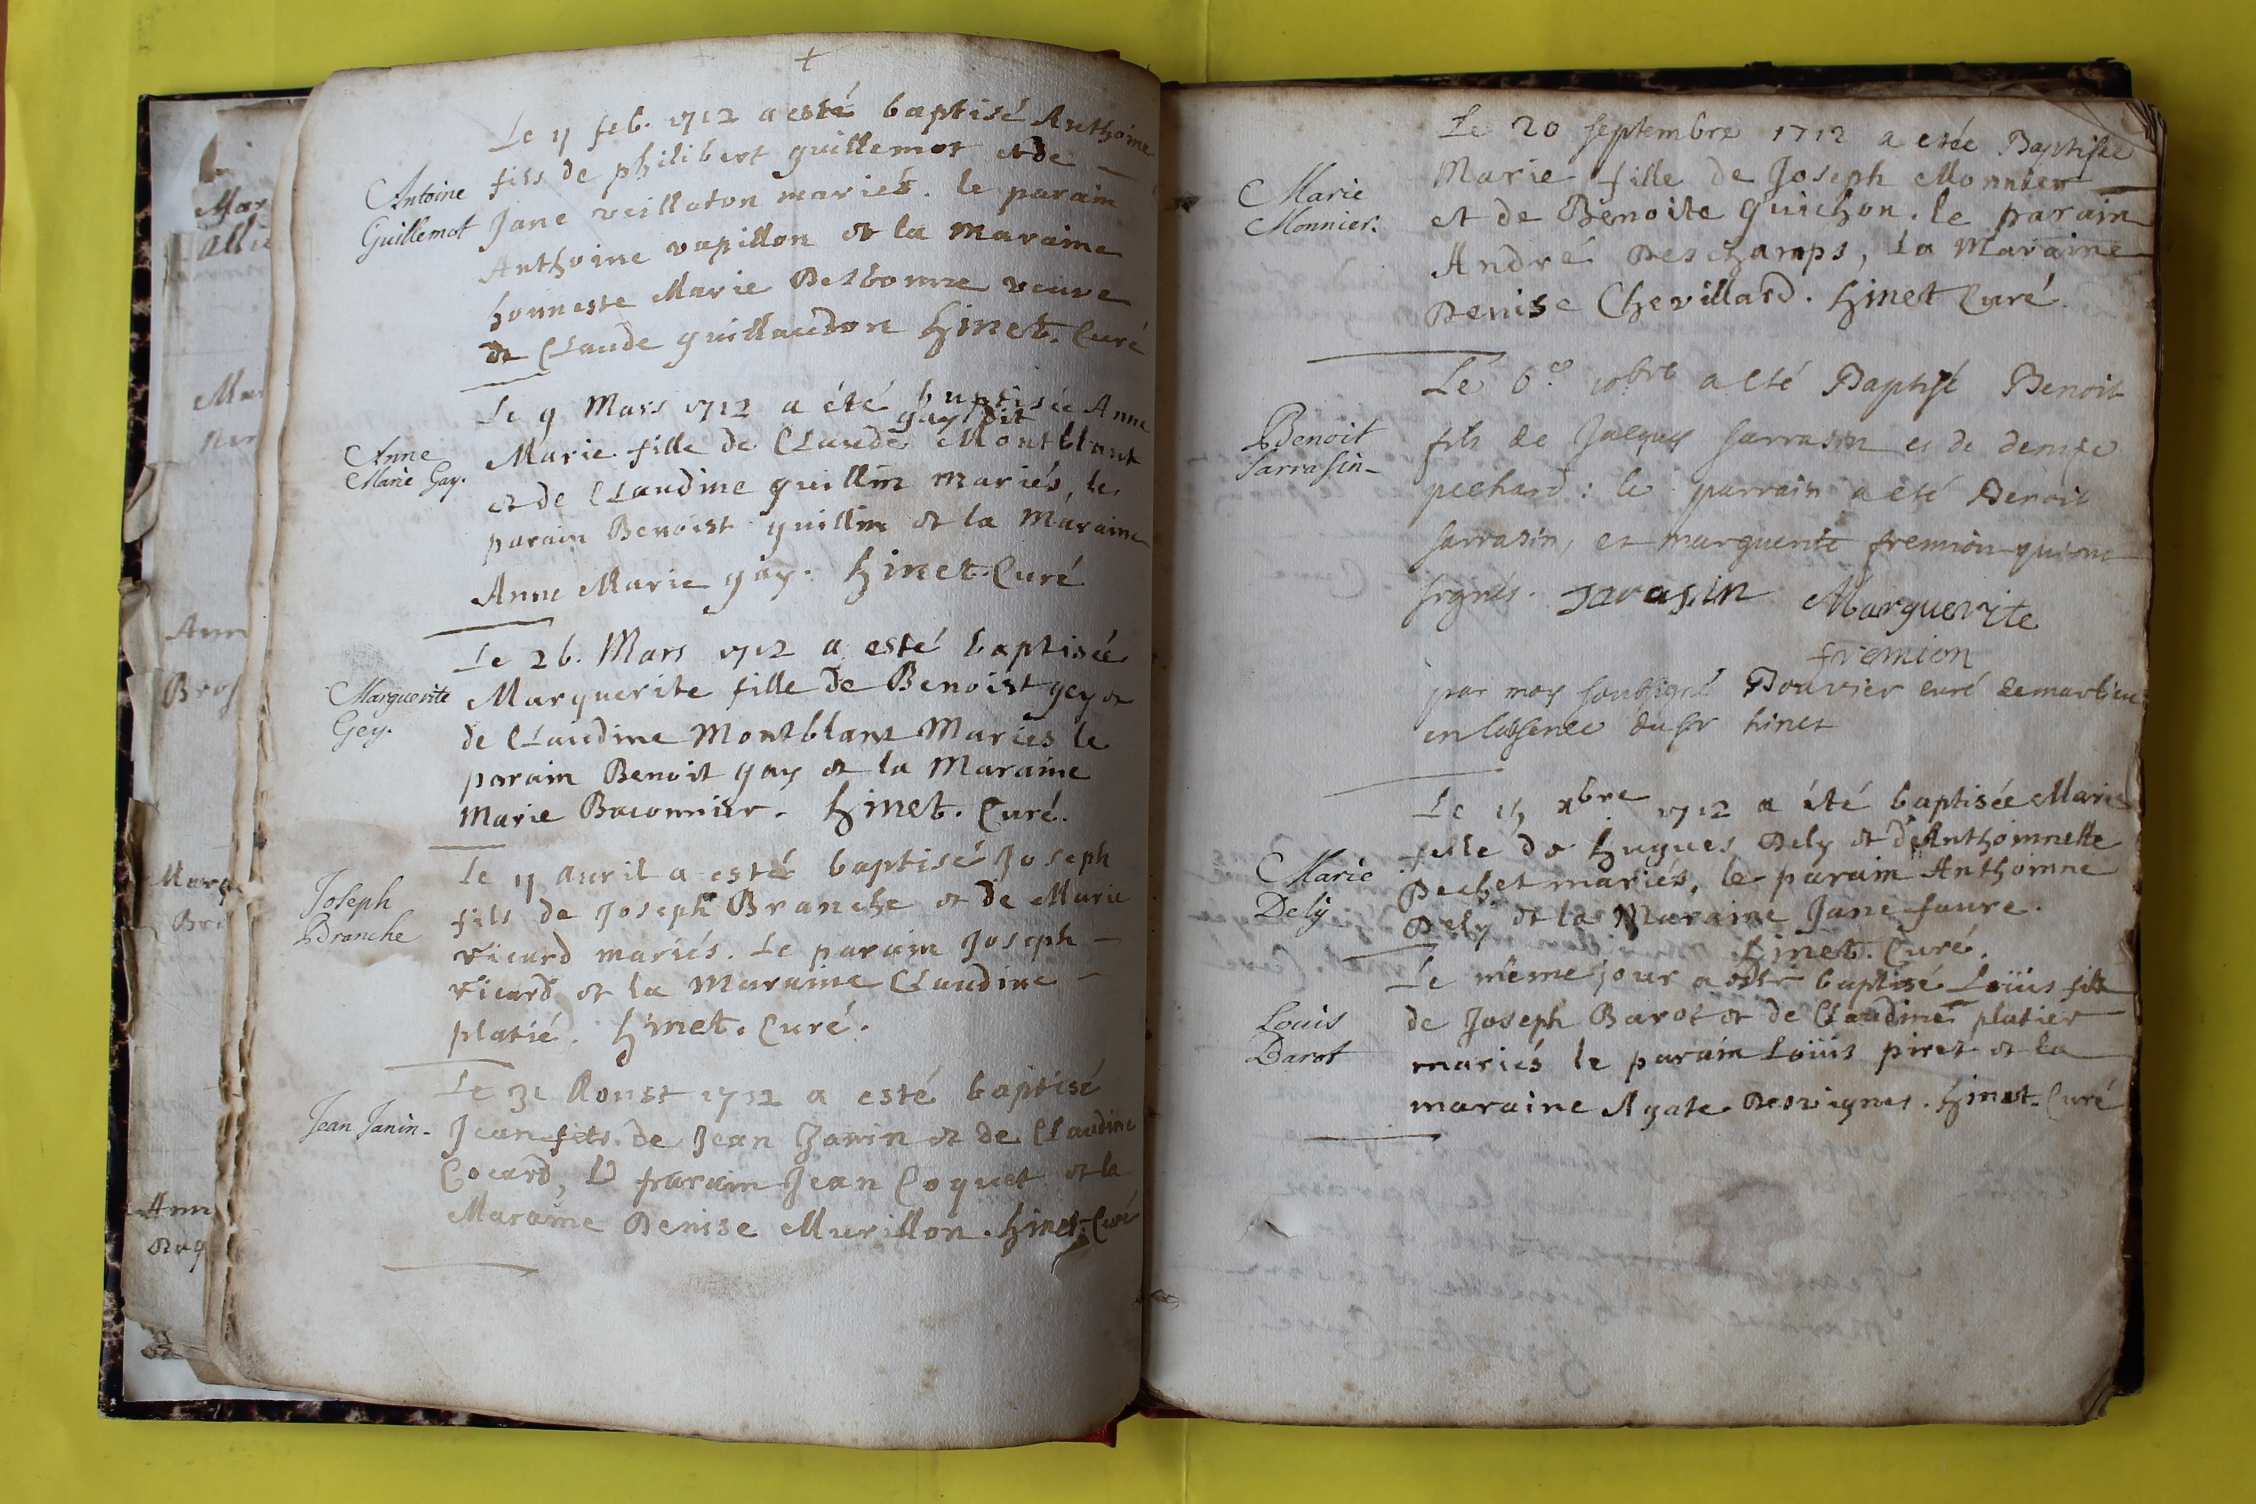 Mar
Alli
Mar
Ann
Bros
Marg
Bri
Ann
Le 11 feb. 1712 a esté baptisé Anthoine
Antoine
Guillemot
fils de philibert guillemot et de
Jane veillaton mariés. le parain
Anthoine vapillon et la maraine
honneste Marie Desbonne veuve
de Claude guillaudon hinet. Curé
Le 9 Mars 1712 a été baptisée Anne
gay dit
Anne
Marie Gay.
Marie fille de Claude Montblant
et de Claudine guillin mariés, le
parain Benoist guillin et la Maraine
Anne Marie gay. hinet. Curé
Le 26. Mars 1712 a esté baptisée
Marguerite
Gey.
Marguerite fille de Benoist gey et
de Claudine Montblant Mariés le
parain Benoit gay et la Maraine
Marie Baconnier. hinet. Curé.
Le 11 Auril a esté baptisé Joseph
Joseph
Branche
fils de Joseph Branche et de Marie
ricard mariés. Le parain Joseph
ricard et la Maraine Claudine
platié. hinet. Curé.
Le 31 Aoust 1712 a esté baptisé
Jean Janin.
Jean fils de Jean Janin et de Claudine
Cocard, le parain Jean Coquet et la
Maraine Denise Murillon. hinet. Curé
Le 20 septembre 1712 a etée Baptisée
Marie
Monnier.
Marie fille de Joseph Monnier
et de Benoite Guichon. le parain
André Deschamps, La Maraine
Denise Chevillard. hinet Curé.
Le 6e 10bre a eté Baptisé Benoit
Benoit
Sarrasin
fils de Jacques sarrasin et de denise
pechard: le parrain a eté Benoit
sarrasin, et marguerite fremion qui ont
signés. sarasin Marguerite
fremion
par moy soubsigné Bouvier curé de
en labsence du sr hinet
Le 15 xbre 1712 a été baptisée Marie
Marie
Dely
fille de hugues Dely et d'Anthoinnette
Pechet mariés, le parain Anthoinne
Dely et la Maraine Jane faure.
hinet. Curé.
Le même jour a esté baptisé Loüis fils
Louis
Barot
de Joseph Barot et de Claudine platier
mariés le parain Loüis piret et la
maraine Agate Desvignes. hinet. Curé